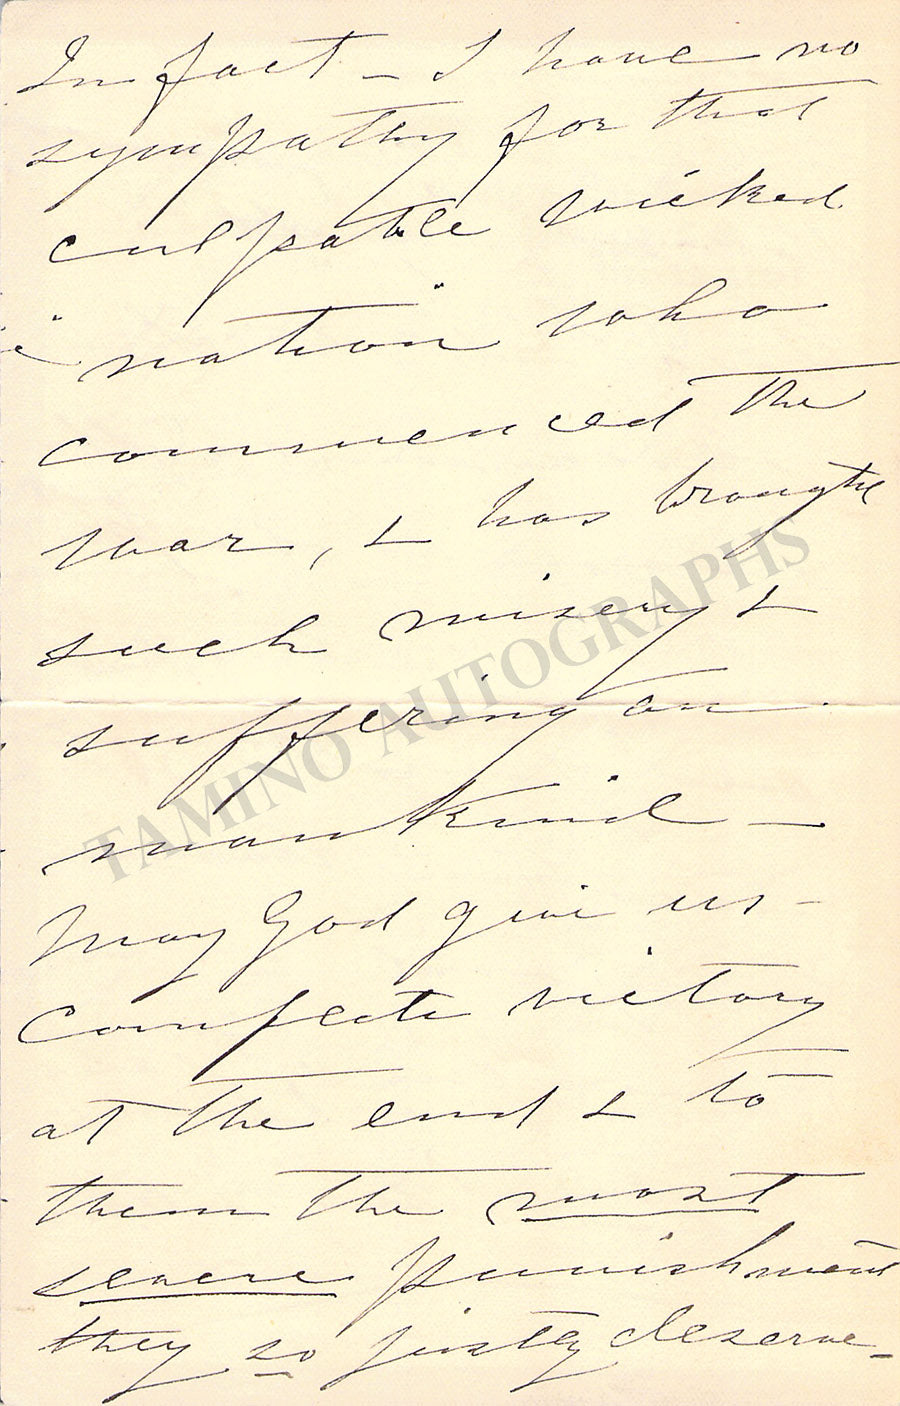 In fact – I have no
sympathy for that
culpable wicked
nation who
commenced the
war, & has brought
such misery &
suffering on
mankind –
May God give us –
complete victory
at the end & to
them the most
severe punishment
they so justly deserve –
TAMINO AUTOGRAPHS